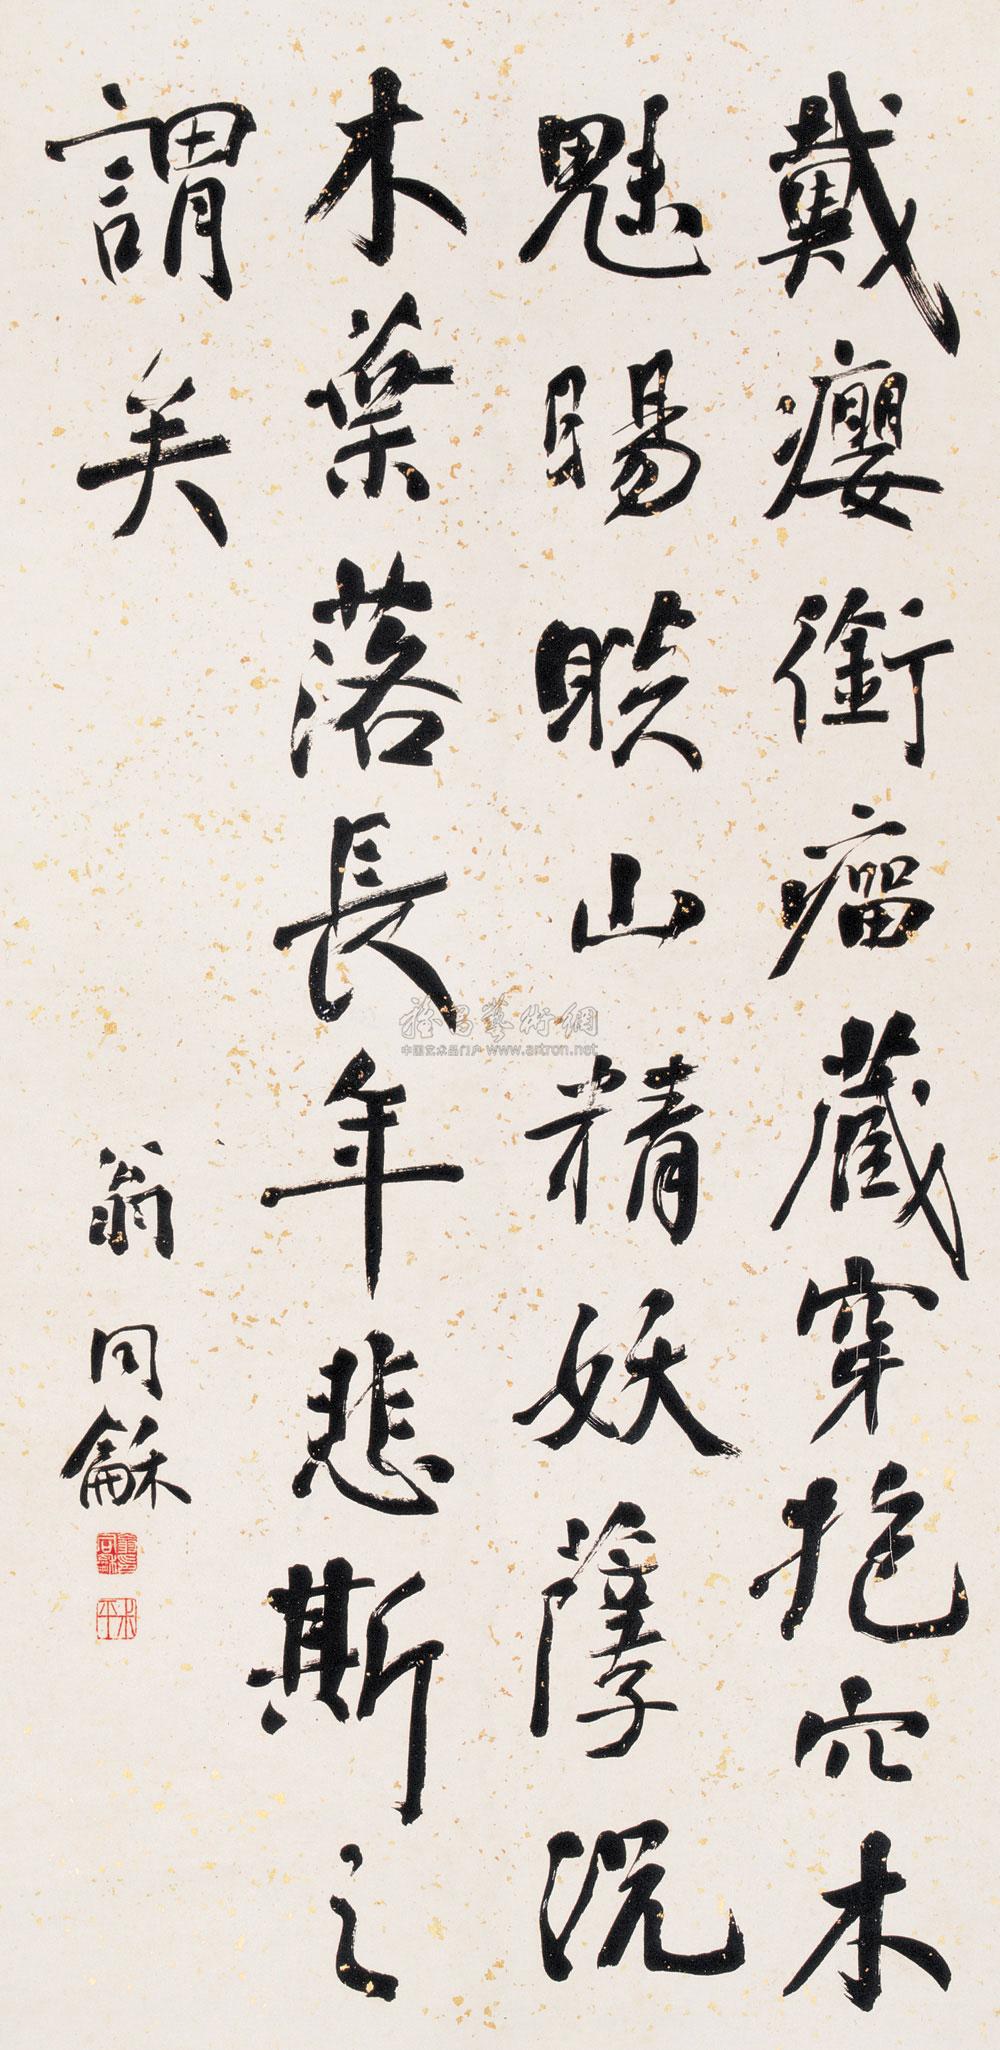 戴癭銜瘤藏穿抱穴木
魅賜睒山精妖孽沉
木葉落長年悲斯之
謂美
翁同龢
雅昌藝術網
中国艺术品门户 www.artron.net